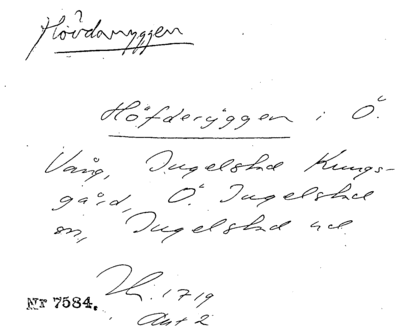 Hövdaryggen
Höfderyggen i Ö.
Vång, Ingelstad Kungs-
gård, Ö. Ingelstad
sn, Ingelstad hd
1719
Akt 2
Nr 7584.